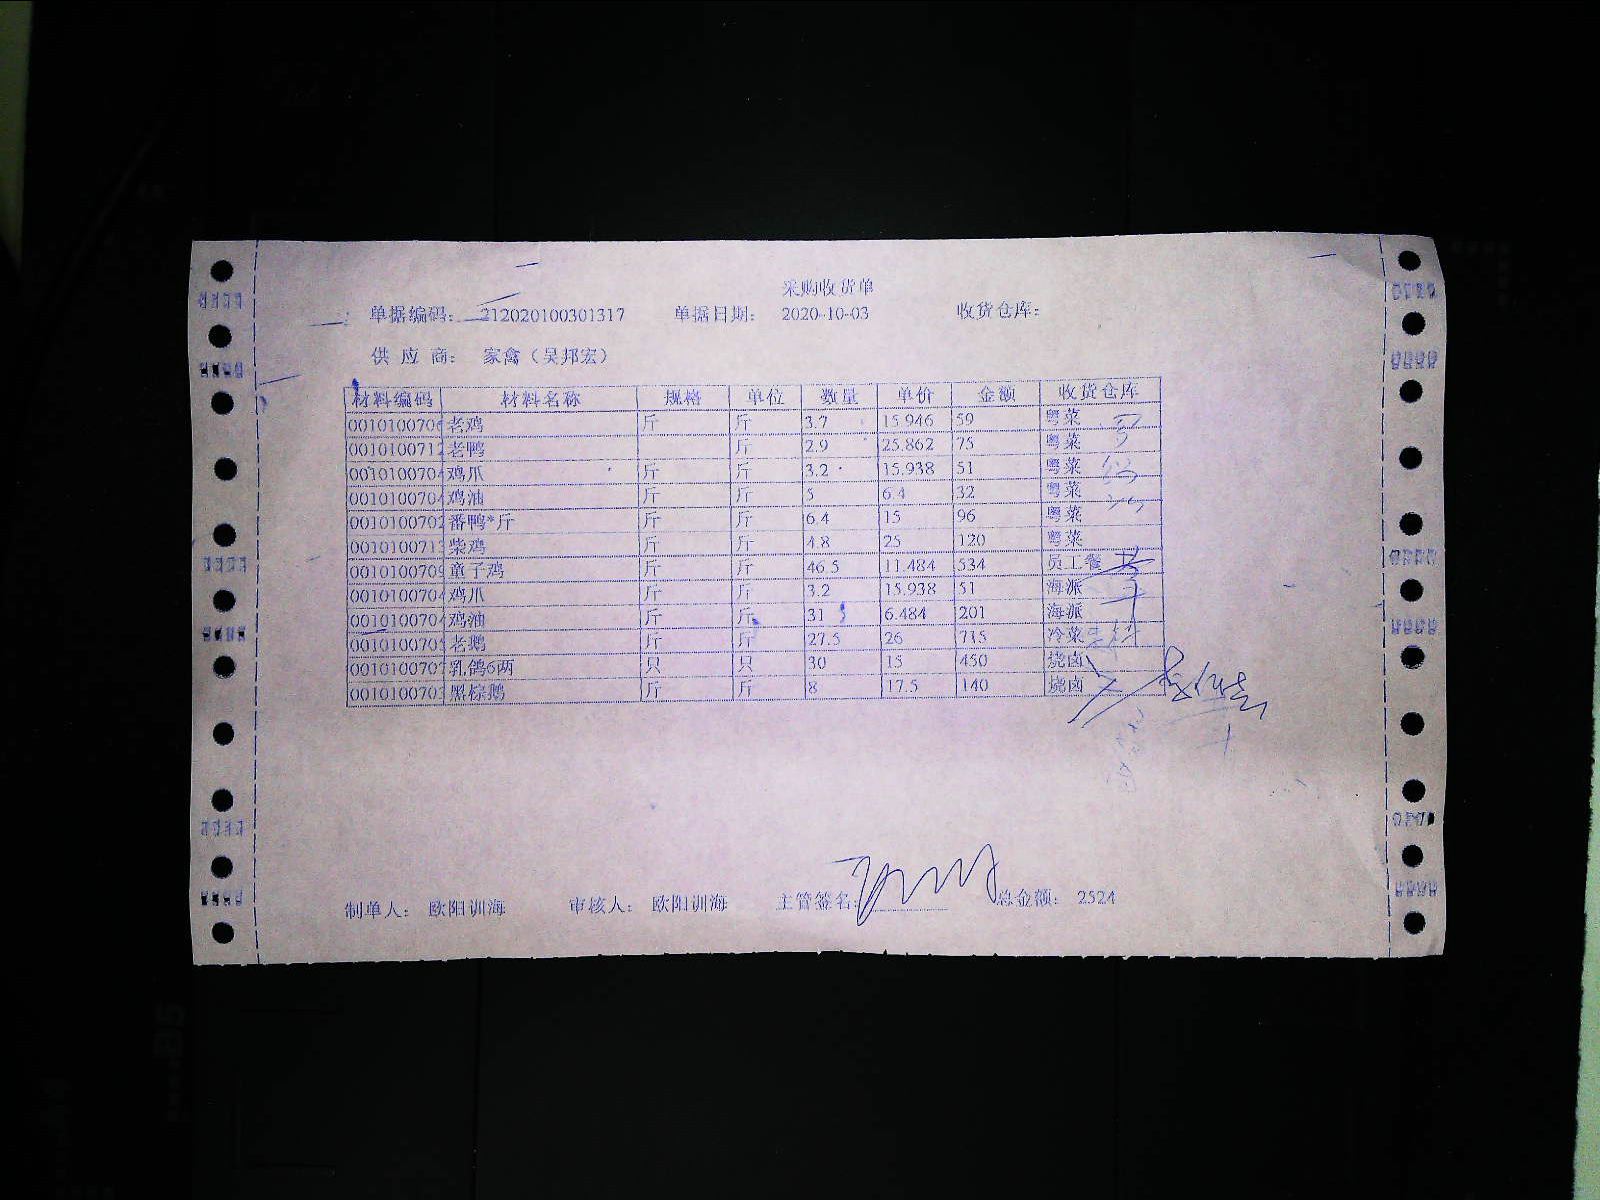 采购收货单
单据编码： 212020100301317 单据日期： 2020-10-03 收货仓库：
供 应 商： 家禽（吴邦宏）
材料编码 材料名称 规格 单位 数量 单价 金额 收货仓库
0010100706 老鸡 斤 斤 3.7 15.946 59 粤菜
0010100712 老鸭 斤 2.9 25.862 75 粤菜
001010070 鸡爪 斤 斤 3.2 15.938 51 粤菜
001010070 鸡油 斤 斤 5 6.4 32 粤菜
0010100702 番鸭*斤 斤 斤 6.4 15 96 粤菜
001010071 柴鸡 斤 斤 4.8 25 120 粤菜
0010100709 童子鸡 斤 斤 46.5 11.484 534 员工餐
001010070 鸡爪 斤 斤 3.2 15.938 51 海派
001010070 鸡油 斤 斤 31 6.484 201 海派
001010070 老鹅 斤 斤 27.5 26 715 冷菜
001010070 乳鸽6两 只 只 30 15 450 烧卤
001010070 黑棕鹅 斤 斤 8 17.5 140 烧卤
制单人： 欧阳训海 审核人： 欧阳训海 主管签名： 总金额： 2524